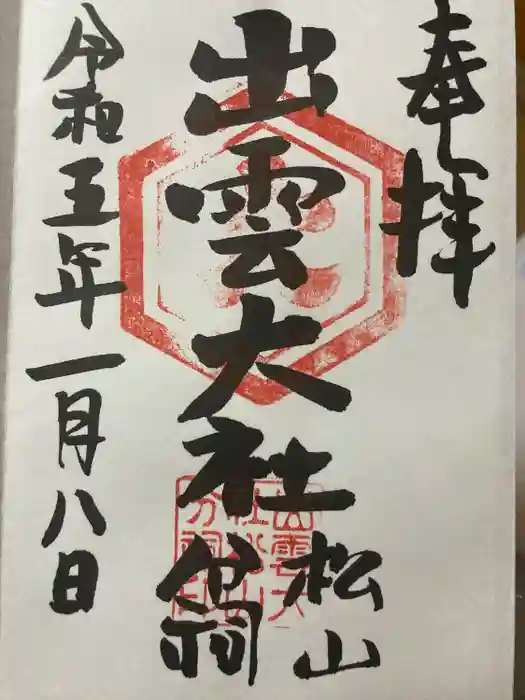 奉拝
出雲大社
松山
分祠
令和五年一月八日
出雲大
社松山
分祠印